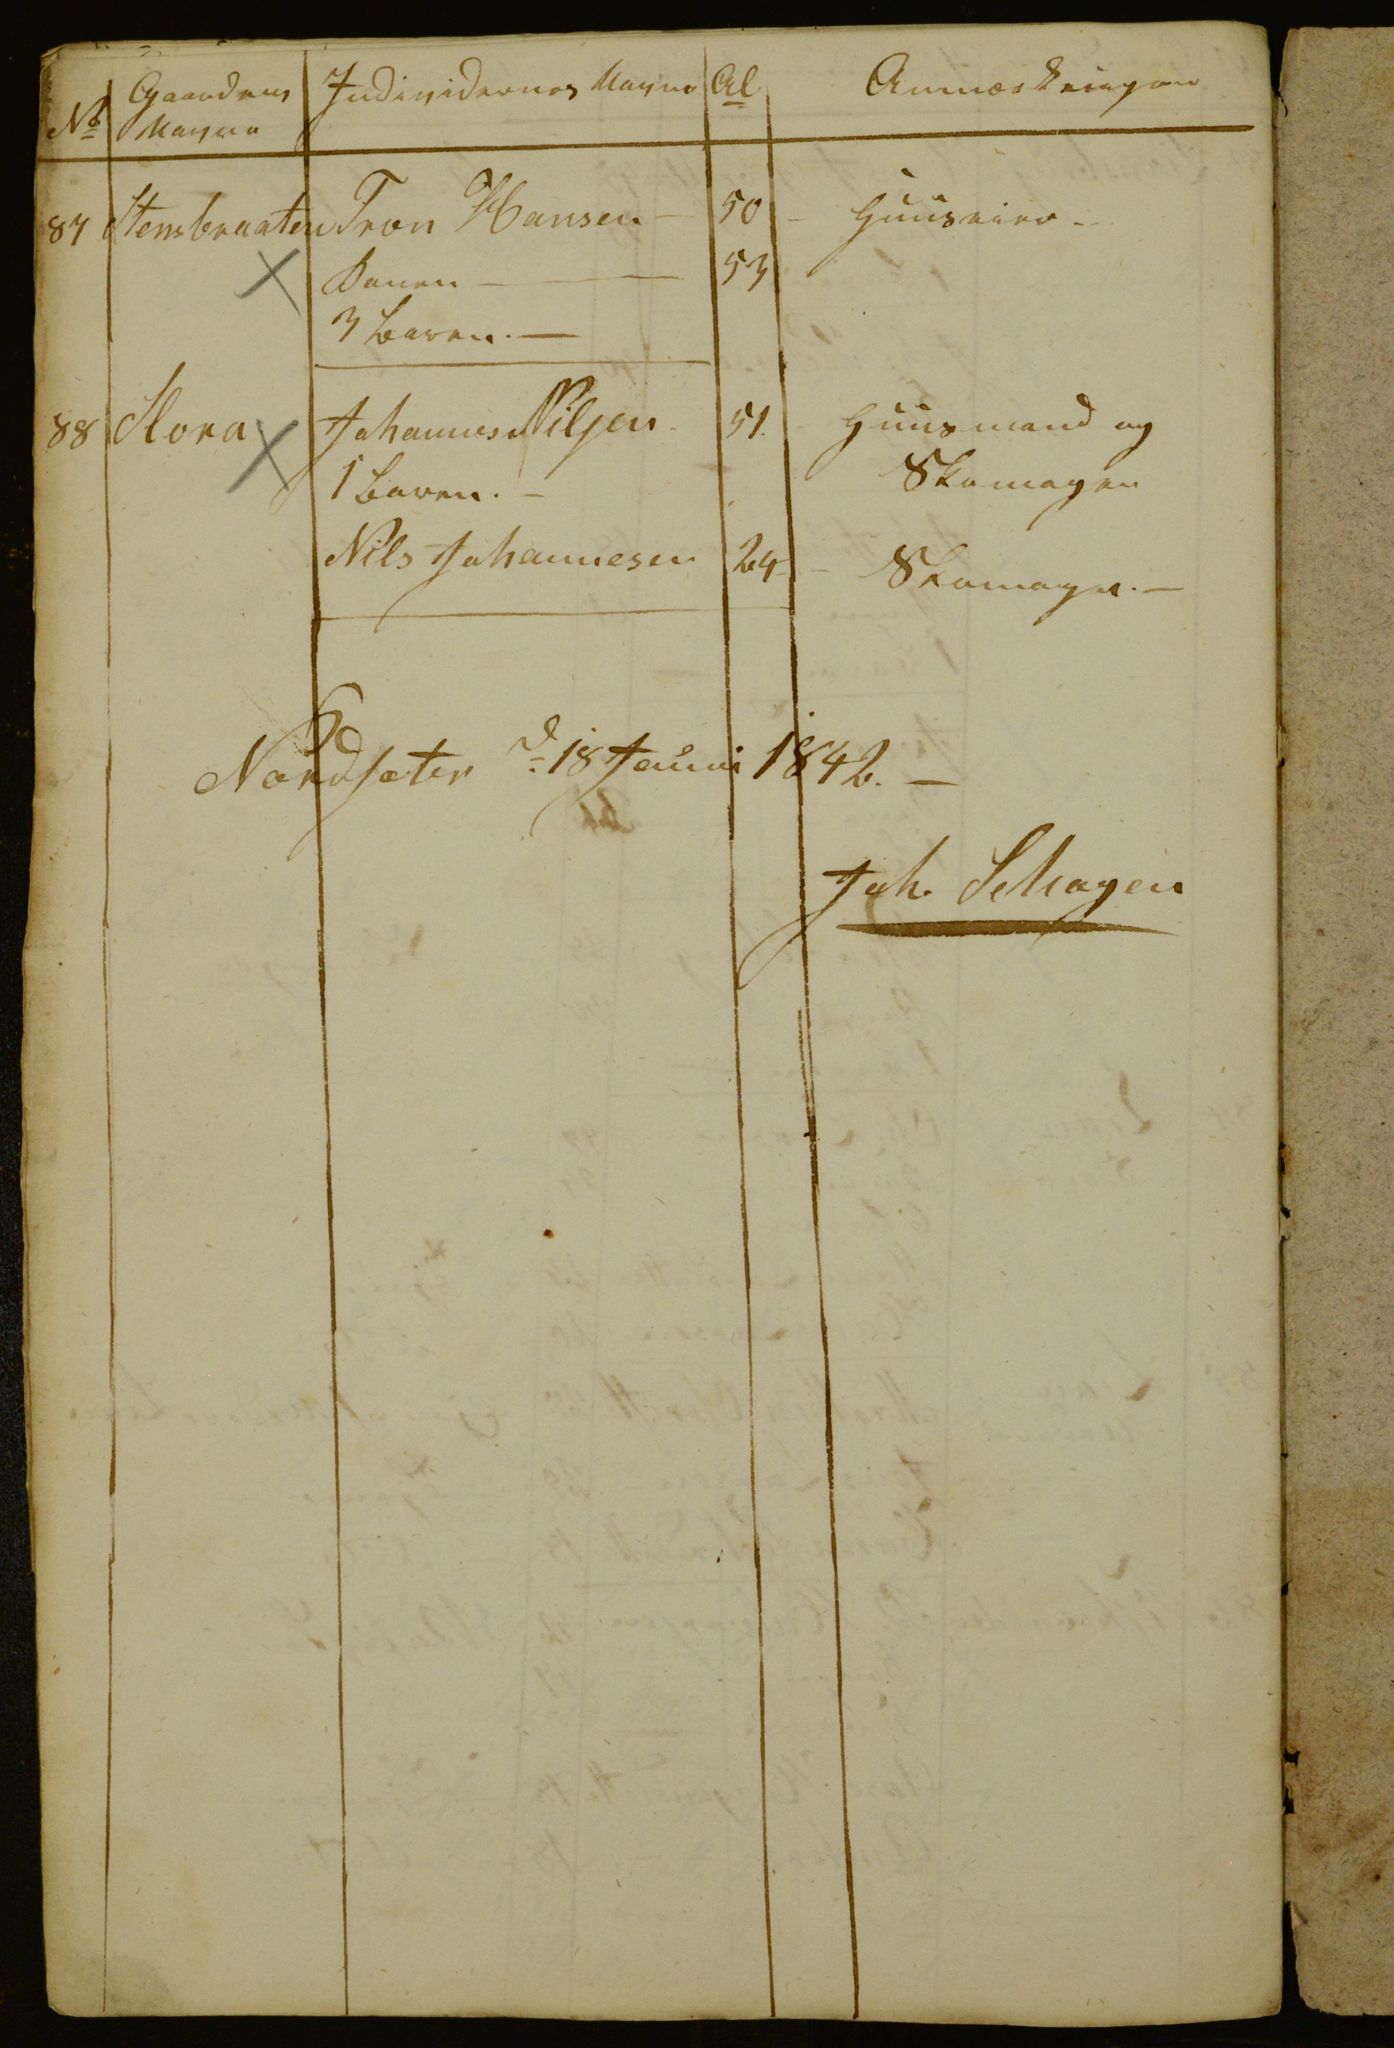 No Gaardens Navne Individernes Navne Al Anmærkninger
87 Stensbraaten Tron Hansen - 50 - Huuseier -
Konen - 53
3 Børen. -
88 Flora Johannes Nilsen - 51. - Huusmand og
1 Børen. - Skomager
Nils Johannesen 24 - Skomager. -
Nordseter d 18 Januar 1842. -
Joh. Schagen